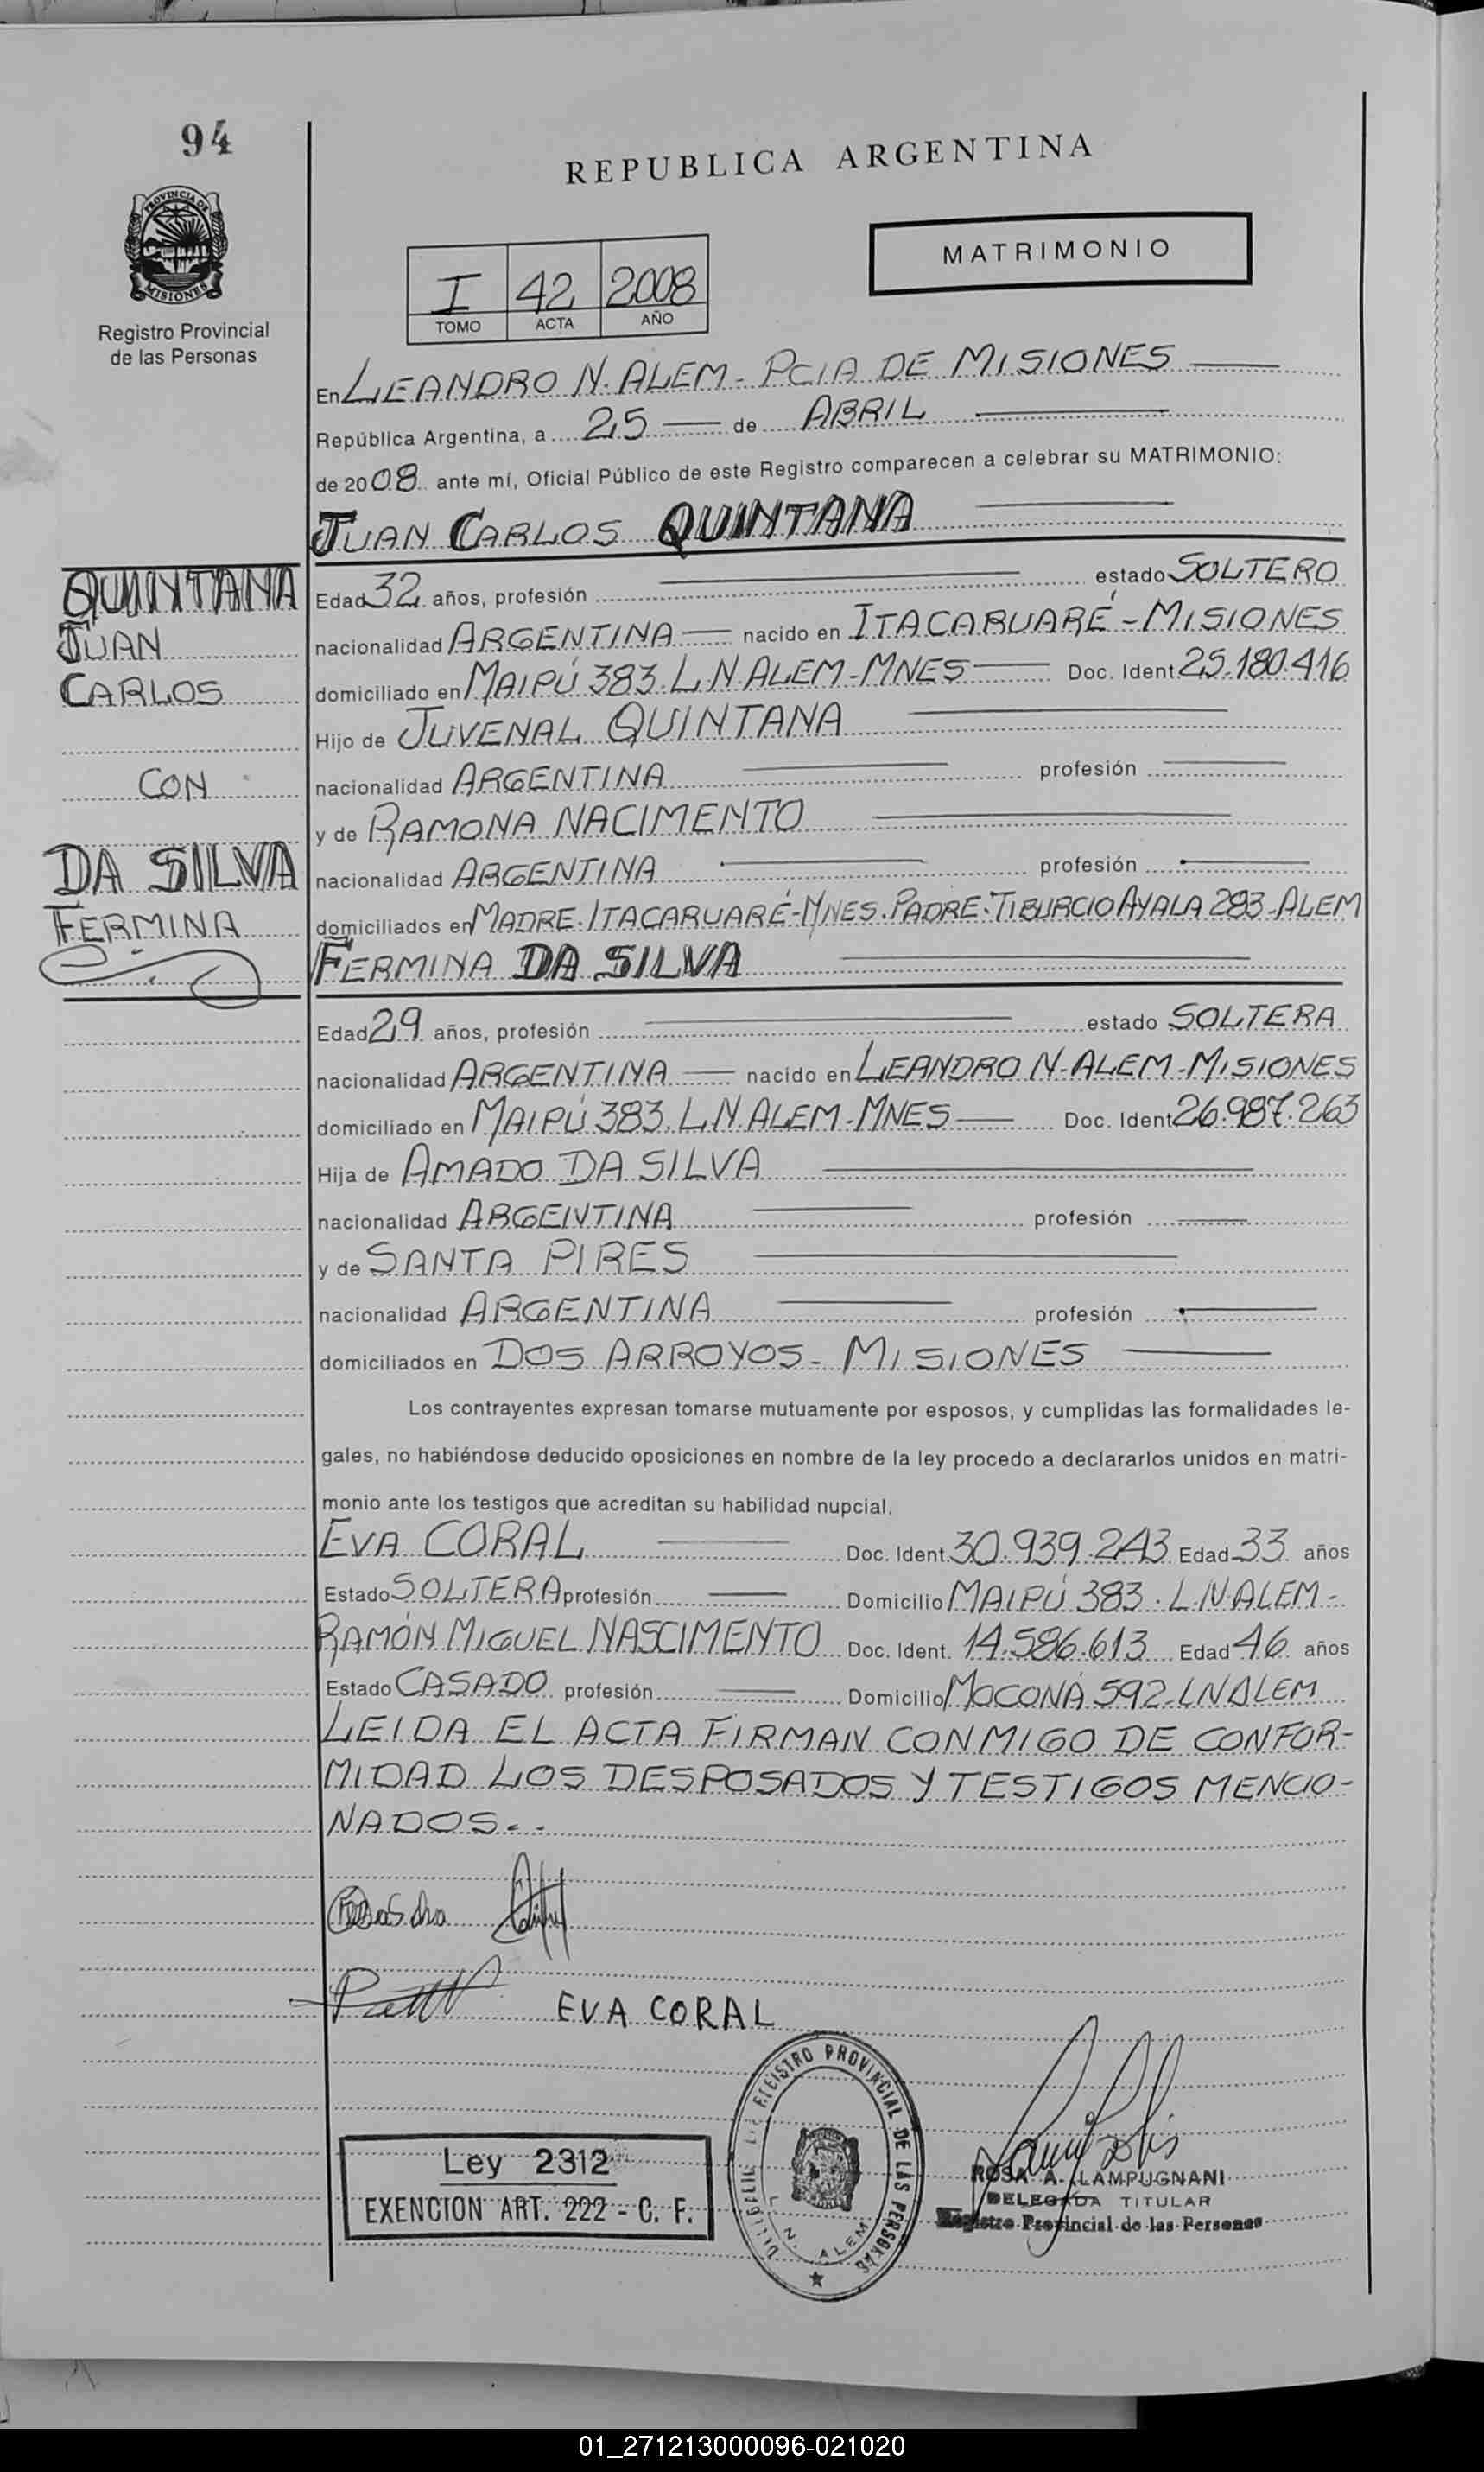 94
REPUBLICA ARGENTINA
PROVINCIA DE
MISIONES
MATRIMONIO
I 42 2008
TOMO ACTA AÑO
Registro Provincial
de las Personas
En LEANDRO N. ALEM - PCIA DE MISIONES
República Argentina, a 25 de ABRIL
de 2008 ante mí, Oficial Público de este Registro comparecen a celebrar su MATRIMONIO:
JUAN CARLOS QUINTANA
QUINTANA
JUAN
CARLOS
CON
DA SILVA
FERMINA
Edad 32 años, profesión estado SOLTERO
nacionalidad ARGENTINA nacido en ITACARUARÉ - MISIONES
domiciliado en MAIPÚ 383. L.N ALEM - MNES Doc. Ident 25.180.416
Hijo de JUVENAL QUINTANA
nacionalidad ARGENTINA profesión
y de RAMONA NACIMENTO
nacionalidad ARGENTINA profesión
domiciliados en MADRE: ITACARUARÉ-MNES. PADRE: TIBURCIO AYALA 283-ALEM
FERMINA DA SILVA
Edad 29 años, profesión estado SOLTERA
nacionalidad ARGENTINA nacido en LEANDRO N. ALEM - MISIONES
domiciliado en MAIPÚ 383. L.N. ALEM - MNES Doc. Ident 26.987.263
Hija de AMADO DA SILVA
nacionalidad ARGENTINA profesión
y de SANTA PIRES
nacionalidad ARGENTINA profesión
domiciliados en DOS ARROYOS - MISIONES
Los contrayentes expresan tomarse mutuamente por esposos, y cumplidas las formalidades le-
gales, no habiéndose deducido oposiciones en nombre de la ley procedo a declararlos unidos en matri-
monio ante los testigos que acreditan su habilidad nupcial.
EVA CORAL Doc. Ident. 30.939.243 Edad 33 años
Estado SOLTERA profesión Domicilio MAIPÚ 383. L.N ALEM -
RAMÓN MIGUEL NASCIMENTO Doc. Ident. 14.586.613 Edad 46 años
Estado CASADO profesión Domicilio MOCONÁ 592-LN ALEM
LEIDA EL ACTA FIRMAN CONMIGO DE CONFOR-
MIDAD LOS DESPOSADOS Y TESTIGOS MENCIO-
NADOS.-
EVA CORAL
REGISTRO PROVINCIAL DE LAS PERSONAS
L. N. ALEM
Ley 2312
EXENCION ART. 222 - C. F.
ROSA A. LAMPUGNANI
DELEGADA TITULAR
Registro Provincial de las Personas
01_271213000096-021020